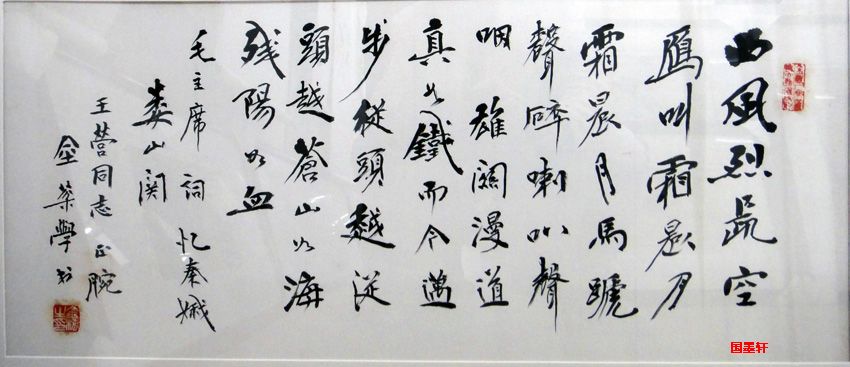 西風烈長空
鴈叫霜晨月
霜晨月馬蹄
聲碎喇叭聲
咽 雄闗漫道
真如鐵而今邁
步從頭越從
頭越蒼山如海
残陽如血
毛主席詞忆秦娥
娄山関
王营同志正腕
學书
国墨轩